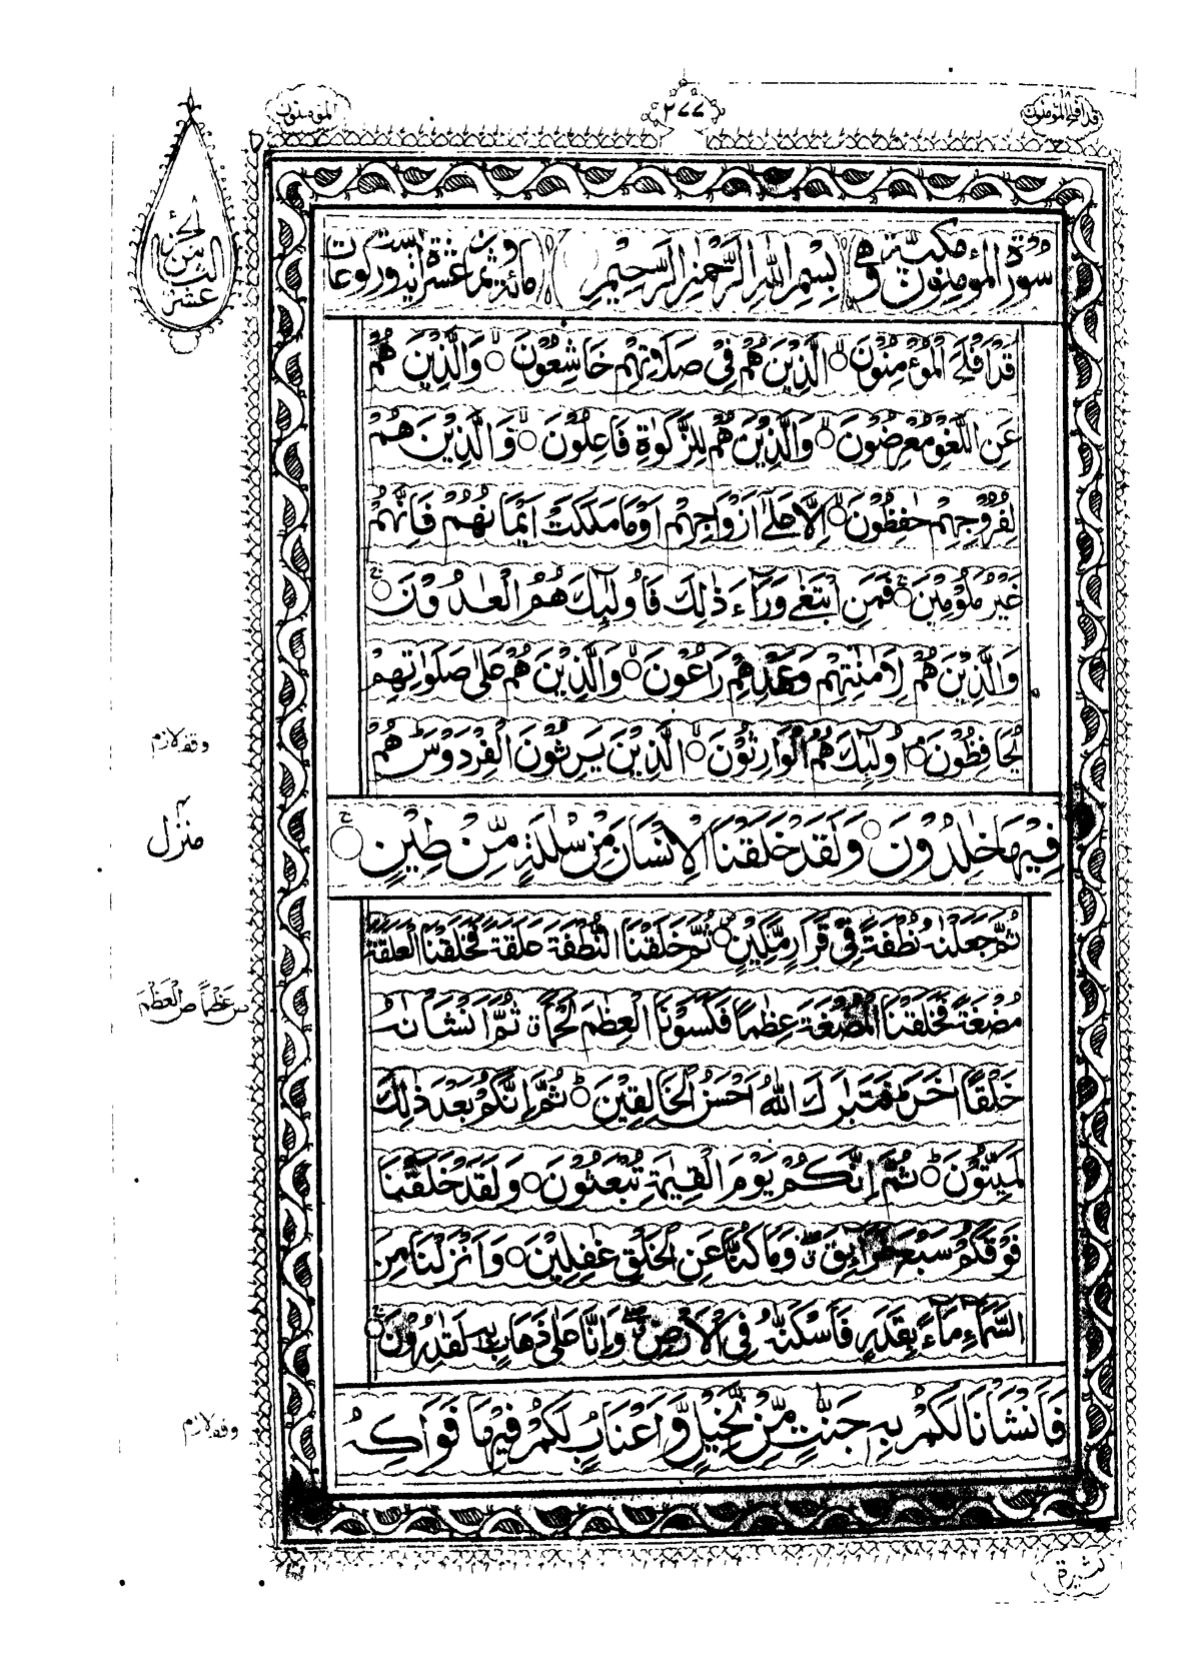 قد افلح المؤمنون
٢٧٧
المؤمنون
الجزء
من
الثامن
عشر
سورة المومنون مكية وهي
بِسْمِ اللّٰهِ الرَّحْمٰنِ الرَّحِيْمِ
مائة وثمان عشرة آية وست ركوعات
قَدْ اَفْلَحَ الْمُؤْمِنُوْنَ ۙ الَّذِيْنَ هُمْ فِيْ صَلَاتِهِمْ خَاشِعُوْنَ ۙ وَالَّذِيْنَ هُمْ
عَنِ اللَّغْوِ مُعْرِضُوْنَ ۙ وَالَّذِيْنَ هُمْ لِلزَّكٰوةِ فَاعِلُوْنَ ۙ وَالَّذِيْنَ هُمْ
لِفُرُوْجِهِمْ حٰفِظُوْنَ ۙ اِلَّا عَلٰٓى اَزْوَاجِهِمْ اَوْ مَا مَلَكَتْ اَيْمَانُهُمْ فَاِنَّهُمْ
غَيْرُ مَلُوْمِيْنَ ۚ فَمَنِ ابْتَغٰى وَرَآءَ ذٰلِكَ فَاُولٰٓئِكَ هُمُ الْعٰدُوْنَ ۚ
وَالَّذِيْنَ هُمْ لِاَمٰنٰتِهِمْ وَعَهْدِهِمْ رَاعُوْنَ ۙ وَالَّذِيْنَ هُمْ عَلٰى صَلَوٰتِهِمْ
يُحَافِظُوْنَ ۘ اُولٰٓئِكَ هُمُ الْوَارِثُوْنَ ۙ الَّذِيْنَ يَرِثُوْنَ الْفِرْدَوْسَ ؕ هُمْ
وقف لازم
منزل ٤
فِيْهَا خٰلِدُوْنَ ○ وَلَقَدْ خَلَقْنَا الْاِنْسَانَ مِنْ سُلٰلَةٍ مِّنْ طِيْنٍ ۚ
ثُمَّ جَعَلْنٰهُ نُطْفَةً فِيْ قَرَارٍ مَّكِيْنٍ ۪ ثُمَّ خَلَقْنَا النُّطْفَةَ عَلَقَةً فَخَلَقْنَا الْعَلَقَةَ
مُضْغَةً فَخَلَقْنَا الْمُضْغَةَ عِظٰمًا فَكَسَوْنَا الْعِظٰمَ لَحْمًا ۗ ثُمَّ اَنْشَاْنٰهُ
س عَظْمًا ص الْعَظْمَ
خَلْقًا اٰخَرَ ؕ فَتَبٰرَكَ اللّٰهُ اَحْسَنُ الْخَالِقِيْنَ ؕ ثُمَّ اِنَّكُمْ بَعْدَ ذٰلِكَ
لَمَيِّتُوْنَ ؕ ثُمَّ اِنَّكُمْ يَوْمَ الْقِيٰمَةِ تُبْعَثُوْنَ ○ وَلَقَدْ خَلَقْنَا
فَوْقَكُمْ سَبْعَ طَرَآئِقَ ۖ وَمَا كُنَّا عَنِ الْخَلْقِ غٰفِلِيْنَ ○ وَاَنْزَلْنَا مِنَ
السَّمَآءِ مَآءً بِقَدَرٍ فَاَسْكَنّٰهُ فِي الْاَرْضِ ۖ وَاِنَّا عَلٰى ذَهَابٍ بِهٖ لَقٰدِرُوْنَ ۚ
فَاَنْشَاْنَا لَكُمْ بِهٖ جَنّٰتٍ مِّنْ نَّخِيْلٍ وَّاَعْنَابٍ لَكُمْ فِيْهَا فَوَاكِهُ
وقف لازم
كثيرة